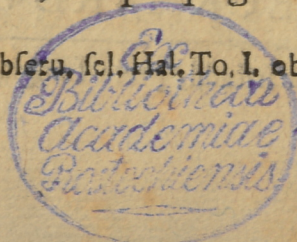 bſeru. ſcl. Hal. To. I. ob
Ex
Bibliotheca
Academiae
Rostochiensis